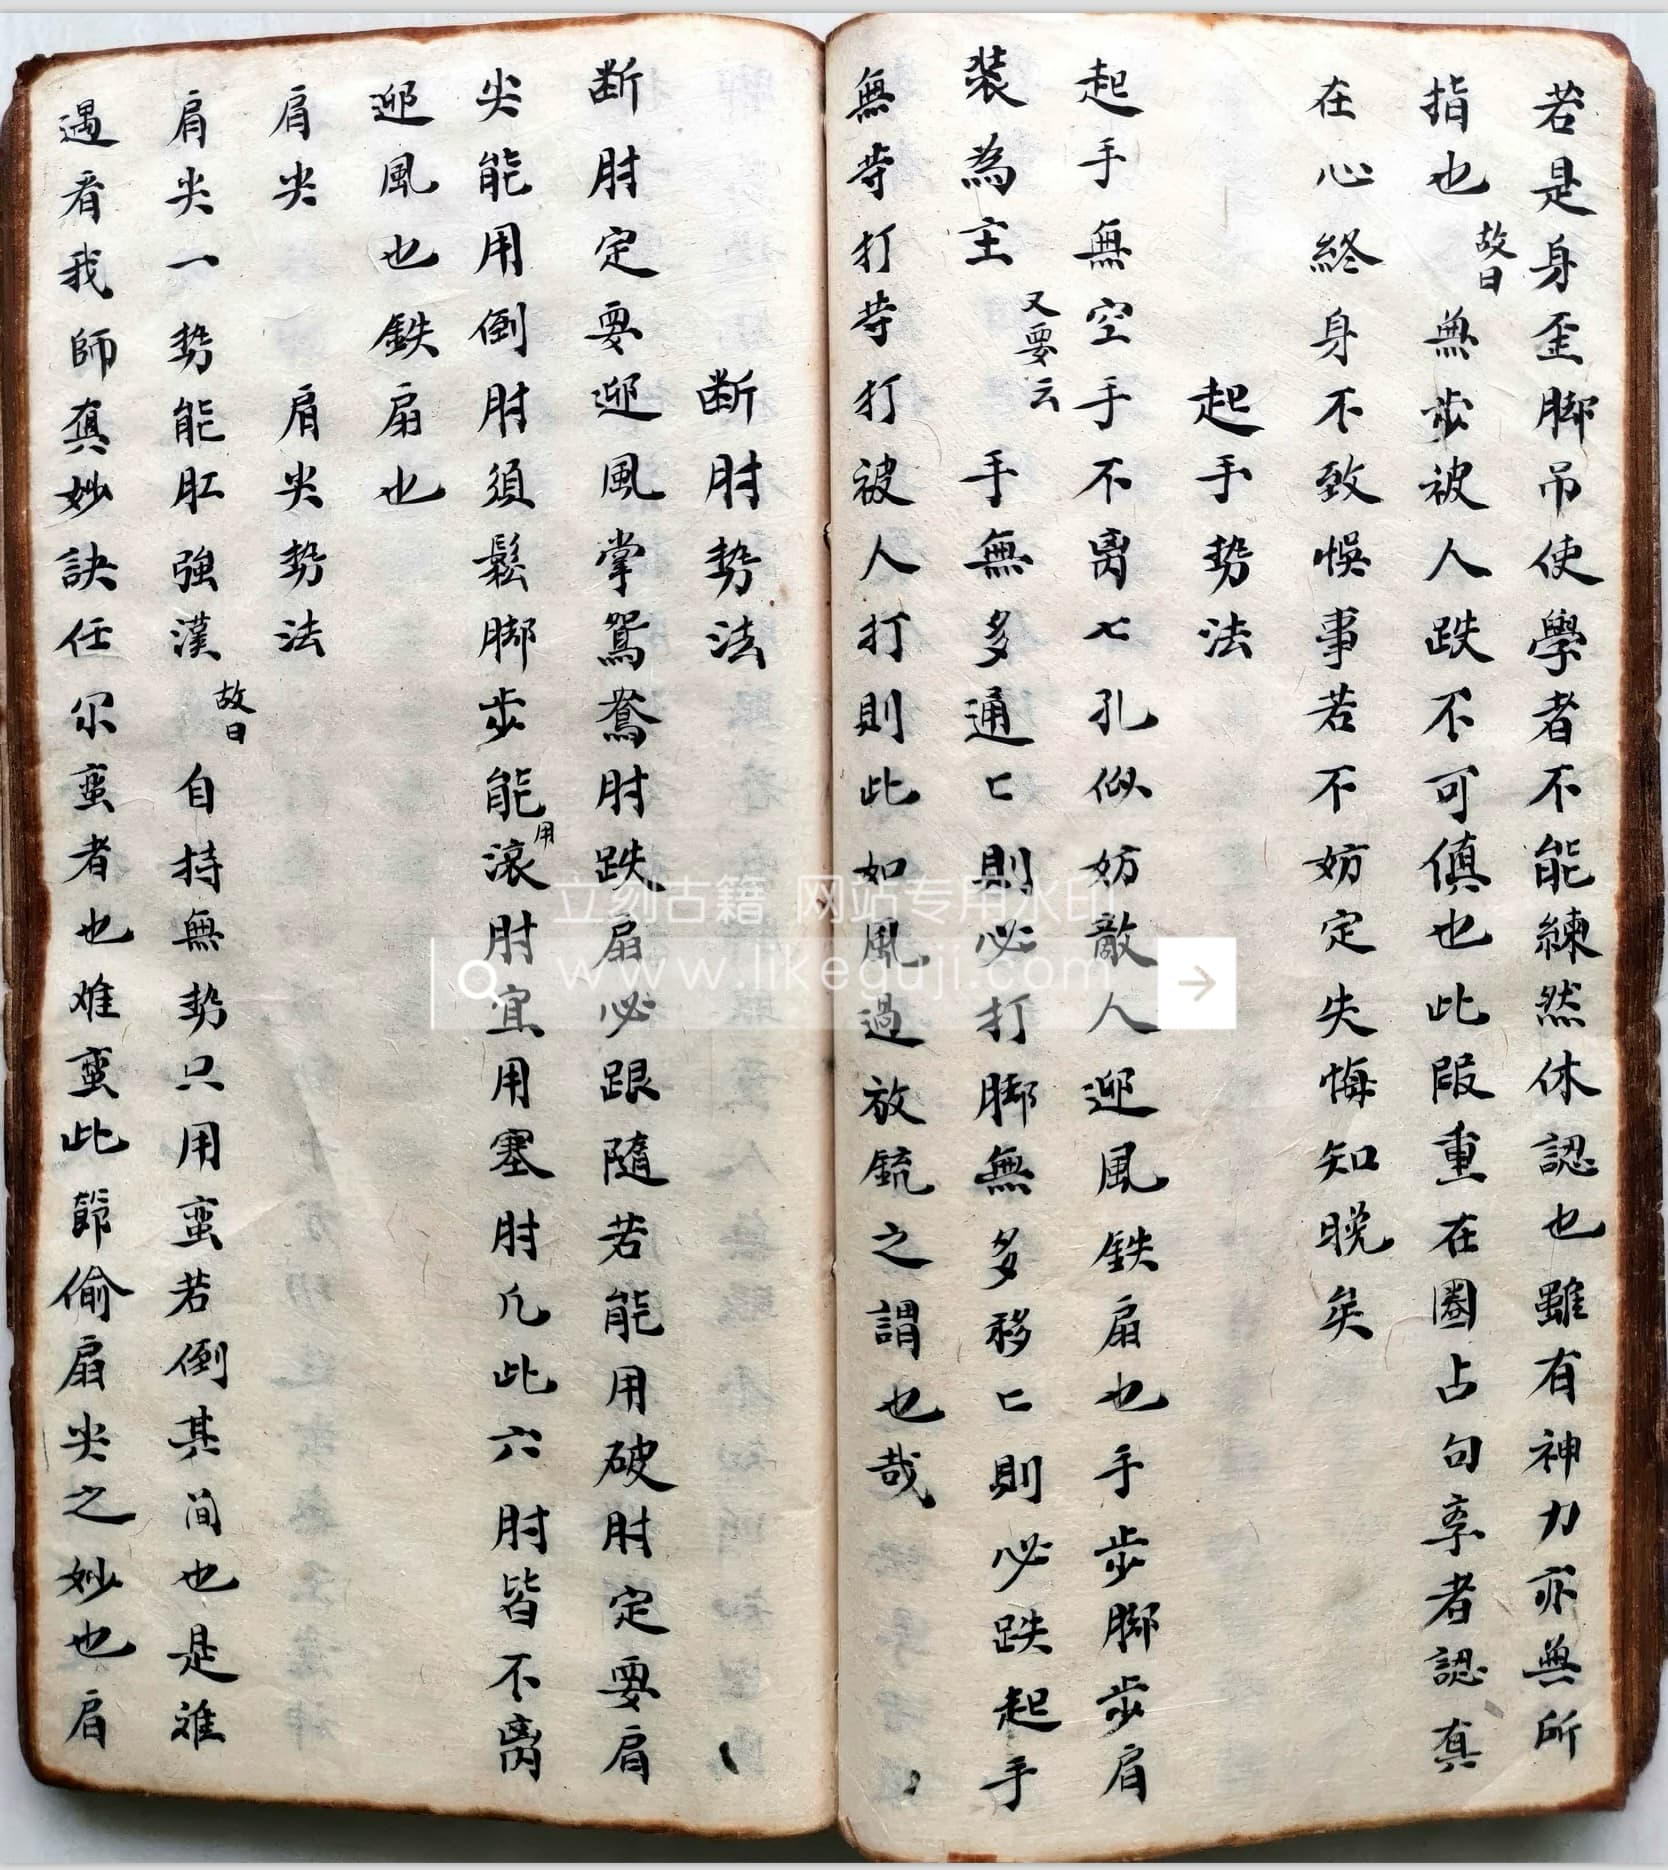 若是身歪脚吊使學者不能練然休認也雖有神力亦無所
指也 故曰 無步被人跌不可傎也此叚重在圈占句孛者認真
在心終身不致悞事若不妨定失悔知晚矣
起手势法
起手無空手不离七孔似妨敵人迎風鉄扇也手步脚步肩
装為主 又要云 手無多通匕則必打脚無多移匕則必跌起手
無苛打苛打被人打則此如風過放銃之謂也哉
断肘势法
断肘定要迎風掌鴛鴦肘跌扇必跟隨若能用破肘定要肩
尖能用倒肘須鬆脚步能用滾肘宜用塞肘凢此六肘皆不离
迎風也鉄扇也
肩尖 肩尖势法
肩尖一势能肛強漢 故曰 自持無势只用蛮若倒其间也是难
遇看我師真妙訣任尔蛮者也难蛮此節偷扇尖之妙也肩
立刻古籍 网站专用水印
www.likeguji.com